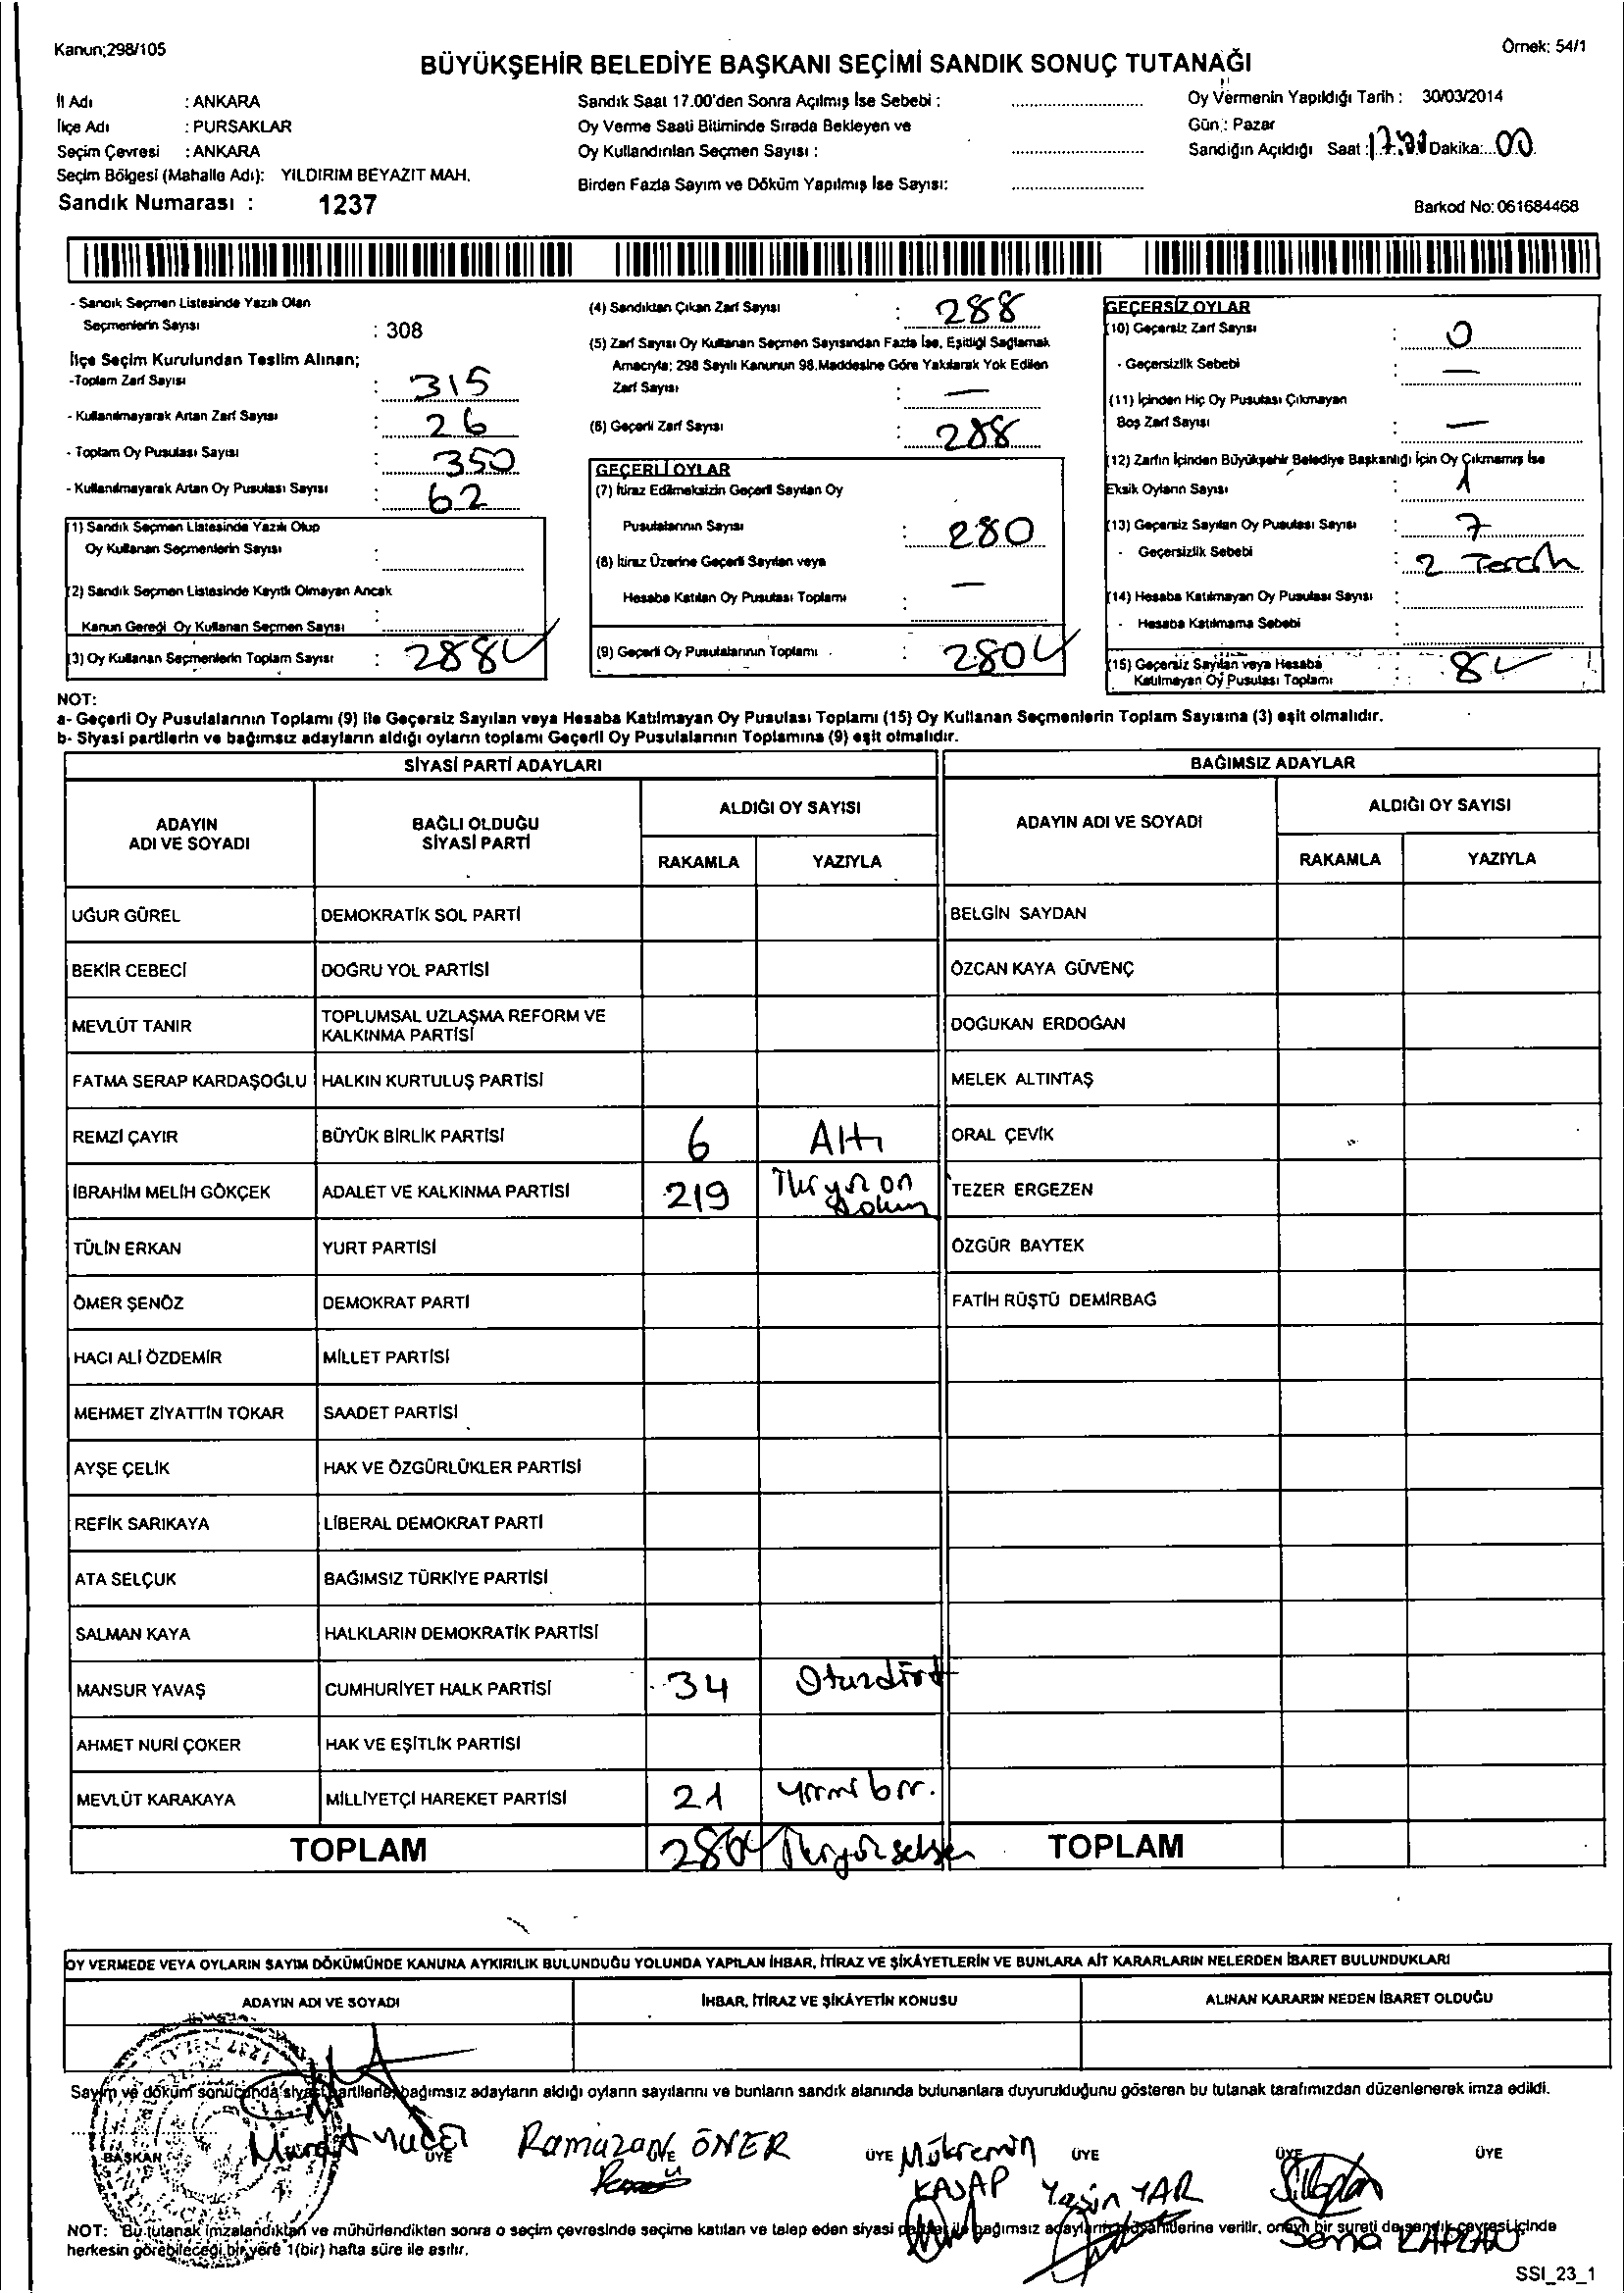 Kanun;298/105
Örnek: 54/1
BÜYÜKŞEHİR BELEDİYE BAŞKANI SEÇİMİ SANDIK SONUÇ TUTANAĞI
İl Adı : ANKARA
İlçe Adı : PURSAKLAR
Seçim Çevresi : ANKARA
Seçim Bölgesi (Mahalle Adı): YILDIRIM BEYAZIT MAH.
Sandık Numarası : 1237
Sandık Saat 17.00'den Sonra Açılmış İse Sebebi :
Oy Verme Saati Bitiminde Sırada Bekleyen ve
Oy Kullandırılan Seçmen Sayısı :
Birden Fazla Sayım ve Döküm Yapılmış İse Sayısı:
Oy Vermenin Yapıldığı Tarih : 30/03/2014
Gün : Pazar
Sandığın Açıldığı Saat : Dakika: 00
Barkod No: 061684468
- Sandık Seçmen Listesinde Yazılı Olan
Seçmenlerin Sayısı : 308
İlçe Seçim Kurulundan Teslim Alınan;
-Toplam Zarf Sayısı : 315
- Kullanılmayarak Artan Zarf Sayısı : 26
- Toplam Oy Pusulası Sayısı : 350
- Kullanılmayarak Artan Oy Pusulası Sayısı : 62
(1) Sandık Seçmen Listesinde Yazılı Olup
Oy Kullanan Seçmenlerin Sayısı :
(2) Sandık Seçmen Listesinde Kayıtlı Olmayan Ancak
Kanun Gereği Oy Kullanan Seçmen Sayısı :
(3) Oy Kullanan Seçmenlerin Toplam Sayısı : 288
(4) Sandıktan Çıkan Zarf Sayısı : 288
(5) Zarf Sayısı Oy Kullanan Seçmen Sayısından Fazla İse, Eşitliği Sağlamak
Amacıyla; 298 Sayılı Kanunun 98.Maddesine Göre Yakılarak Yok Edilen
Zarf Sayısı : —
(6) Geçerli Zarf Sayısı : 288
GEÇERLİ OYLAR
(7) İtiraz Edilmeksizin Geçerli Sayılan Oy
Pusulalarının Sayısı : 280
(8) İtiraz Üzerine Geçerli Sayılan veya
Hesaba Katılan Oy Pusulası Toplamı : —
(9) Geçerli Oy Pusulalarının Toplamı : 280
GEÇERSİZ OYLAR
(10) Geçersiz Zarf Sayısı : 0
- Geçersizlik Sebebi : —
(11) İçinden Hiç Oy Pusulası Çıkmayan
Boş Zarf Sayısı : —
(12) Zarfın İçinden Büyükşehir Belediye Başkanlığı İçin Oy Çıkmamış İse
Eksik Oyların Sayısı : 1
(13) Geçersiz Sayılan Oy Pusulası Sayısı : 7
- Geçersizlik Sebebi : 2 Tercih
(14) Hesaba Katılmayan Oy Pusulası Sayısı :
- Hesaba Katılmama Sebebi :
(15) Geçersiz Sayılan veya Hesaba
Katılmayan Oy Pusulası Toplamı : 8
NOT:
a- Geçerli Oy Pusulalarının Toplamı (9) ile Geçersiz Sayılan veya Hesaba Katılmayan Oy Pusulası Toplamı (15) Oy Kullanan Seçmenlerin Toplam Sayısına (3) eşit olmalıdır.
b- Siyasi partilerin ve bağımsız adayların aldığı oyların toplamı Geçerli Oy Pusulalarının Toplamına (9) eşit olmalıdır.
SİYASİ PARTİ ADAYLARI BAĞIMSIZ ADAYLAR
ADAYIN ADI VE SOYADI BAĞLI OLDUĞU SİYASİ PARTİ ALDIĞI OY SAYISI ADAYIN ADI VE SOYADI ALDIĞI OY SAYISI
RAKAMLA YAZIYLA RAKAMLA YAZIYLA
UĞUR GÜREL DEMOKRATİK SOL PARTİ BELGİN SAYDAN
BEKİR CEBECİ DOĞRU YOL PARTİSİ ÖZCAN KAYA GÜVENÇ
MEVLÜT TANIR TOPLUMSAL UZLAŞMA REFORM VE KALKINMA PARTİSİ DOĞUKAN ERDOĞAN
FATMA SERAP KARDAŞOĞLU HALKIN KURTULUŞ PARTİSİ MELEK ALTINTAŞ
REMZİ ÇAYIR BÜYÜK BİRLİK PARTİSİ 6 Altı ORAL ÇEVİK
İBRAHİM MELİH GÖKÇEK ADALET VE KALKINMA PARTİSİ 219 İkiyüz on dokuz TEZER ERGEZEN
TÜLİN ERKAN YURT PARTİSİ ÖZGÜR BAYTEK
ÖMER ŞENÖZ DEMOKRAT PARTİ FATİH RÜŞTÜ DEMİRBAĞ
HACI ALİ ÖZDEMİR MİLLET PARTİSİ
MEHMET ZİYATTİN TOKAR SAADET PARTİSİ
AYŞE ÇELİK HAK VE ÖZGÜRLÜKLER PARTİSİ
REFİK SARIKAYA LİBERAL DEMOKRAT PARTİ
ATA SELÇUK BAĞIMSIZ TÜRKİYE PARTİSİ
SALMAN KAYA HALKLARIN DEMOKRATİK PARTİSİ
MANSUR YAVAŞ CUMHURİYET HALK PARTİSİ 34 Otuzdört
AHMET NURİ ÇOKER HAK VE EŞİTLİK PARTİSİ
MEVLÜT KARAKAYA MİLLİYETÇİ HAREKET PARTİSİ 21 yirmi bir.
TOPLAM 280 İkiyüz seksen TOPLAM
OY VERMEDE VEYA OYLARIN SAYIM DÖKÜMÜNDE KANUNA AYKIRILIK BULUNDUĞU YOLUNDA YAPILAN İHBAR, İTİRAZ VE ŞİKÂYETLERİN VE BUNLARA AİT KARARLARIN NELERDEN İBARET BULUNDUKLARI
ADAYIN ADI VE SOYADI İHBAR, İTİRAZ VE ŞİKÂYETİN KONUSU ALINAN KARARIN NEDEN İBARET OLDUĞU
Sayım ve döküm sonucunda siyasi partilerle bağımsız adayların aldığı oyların sayılarını ve bunların sandık alanında bulunanlara duyurulduğunu gösteren bu tutanak tarafımızdan düzenlenerek imza edildi.
BAŞKAN Murat YÜCEL ÜYE Ramazan ÖNER ÜYE ÜYE Mükremin KASAP ÜYE Yasin YAR ÜYE Sena KAPLAN ÜYE
NOT: Bu tutanak imzalandıktan ve mühürlendikten sonra o seçim çevresinde seçime katılan ve talep eden siyasi partiler ile bağımsız adayların müşahitlerine verilir, onaylı bir sureti de sandık çevresi içinde
herkesin görebileceği bir yere 1(bir) hafta süre ile asılır.
SSI_23_1